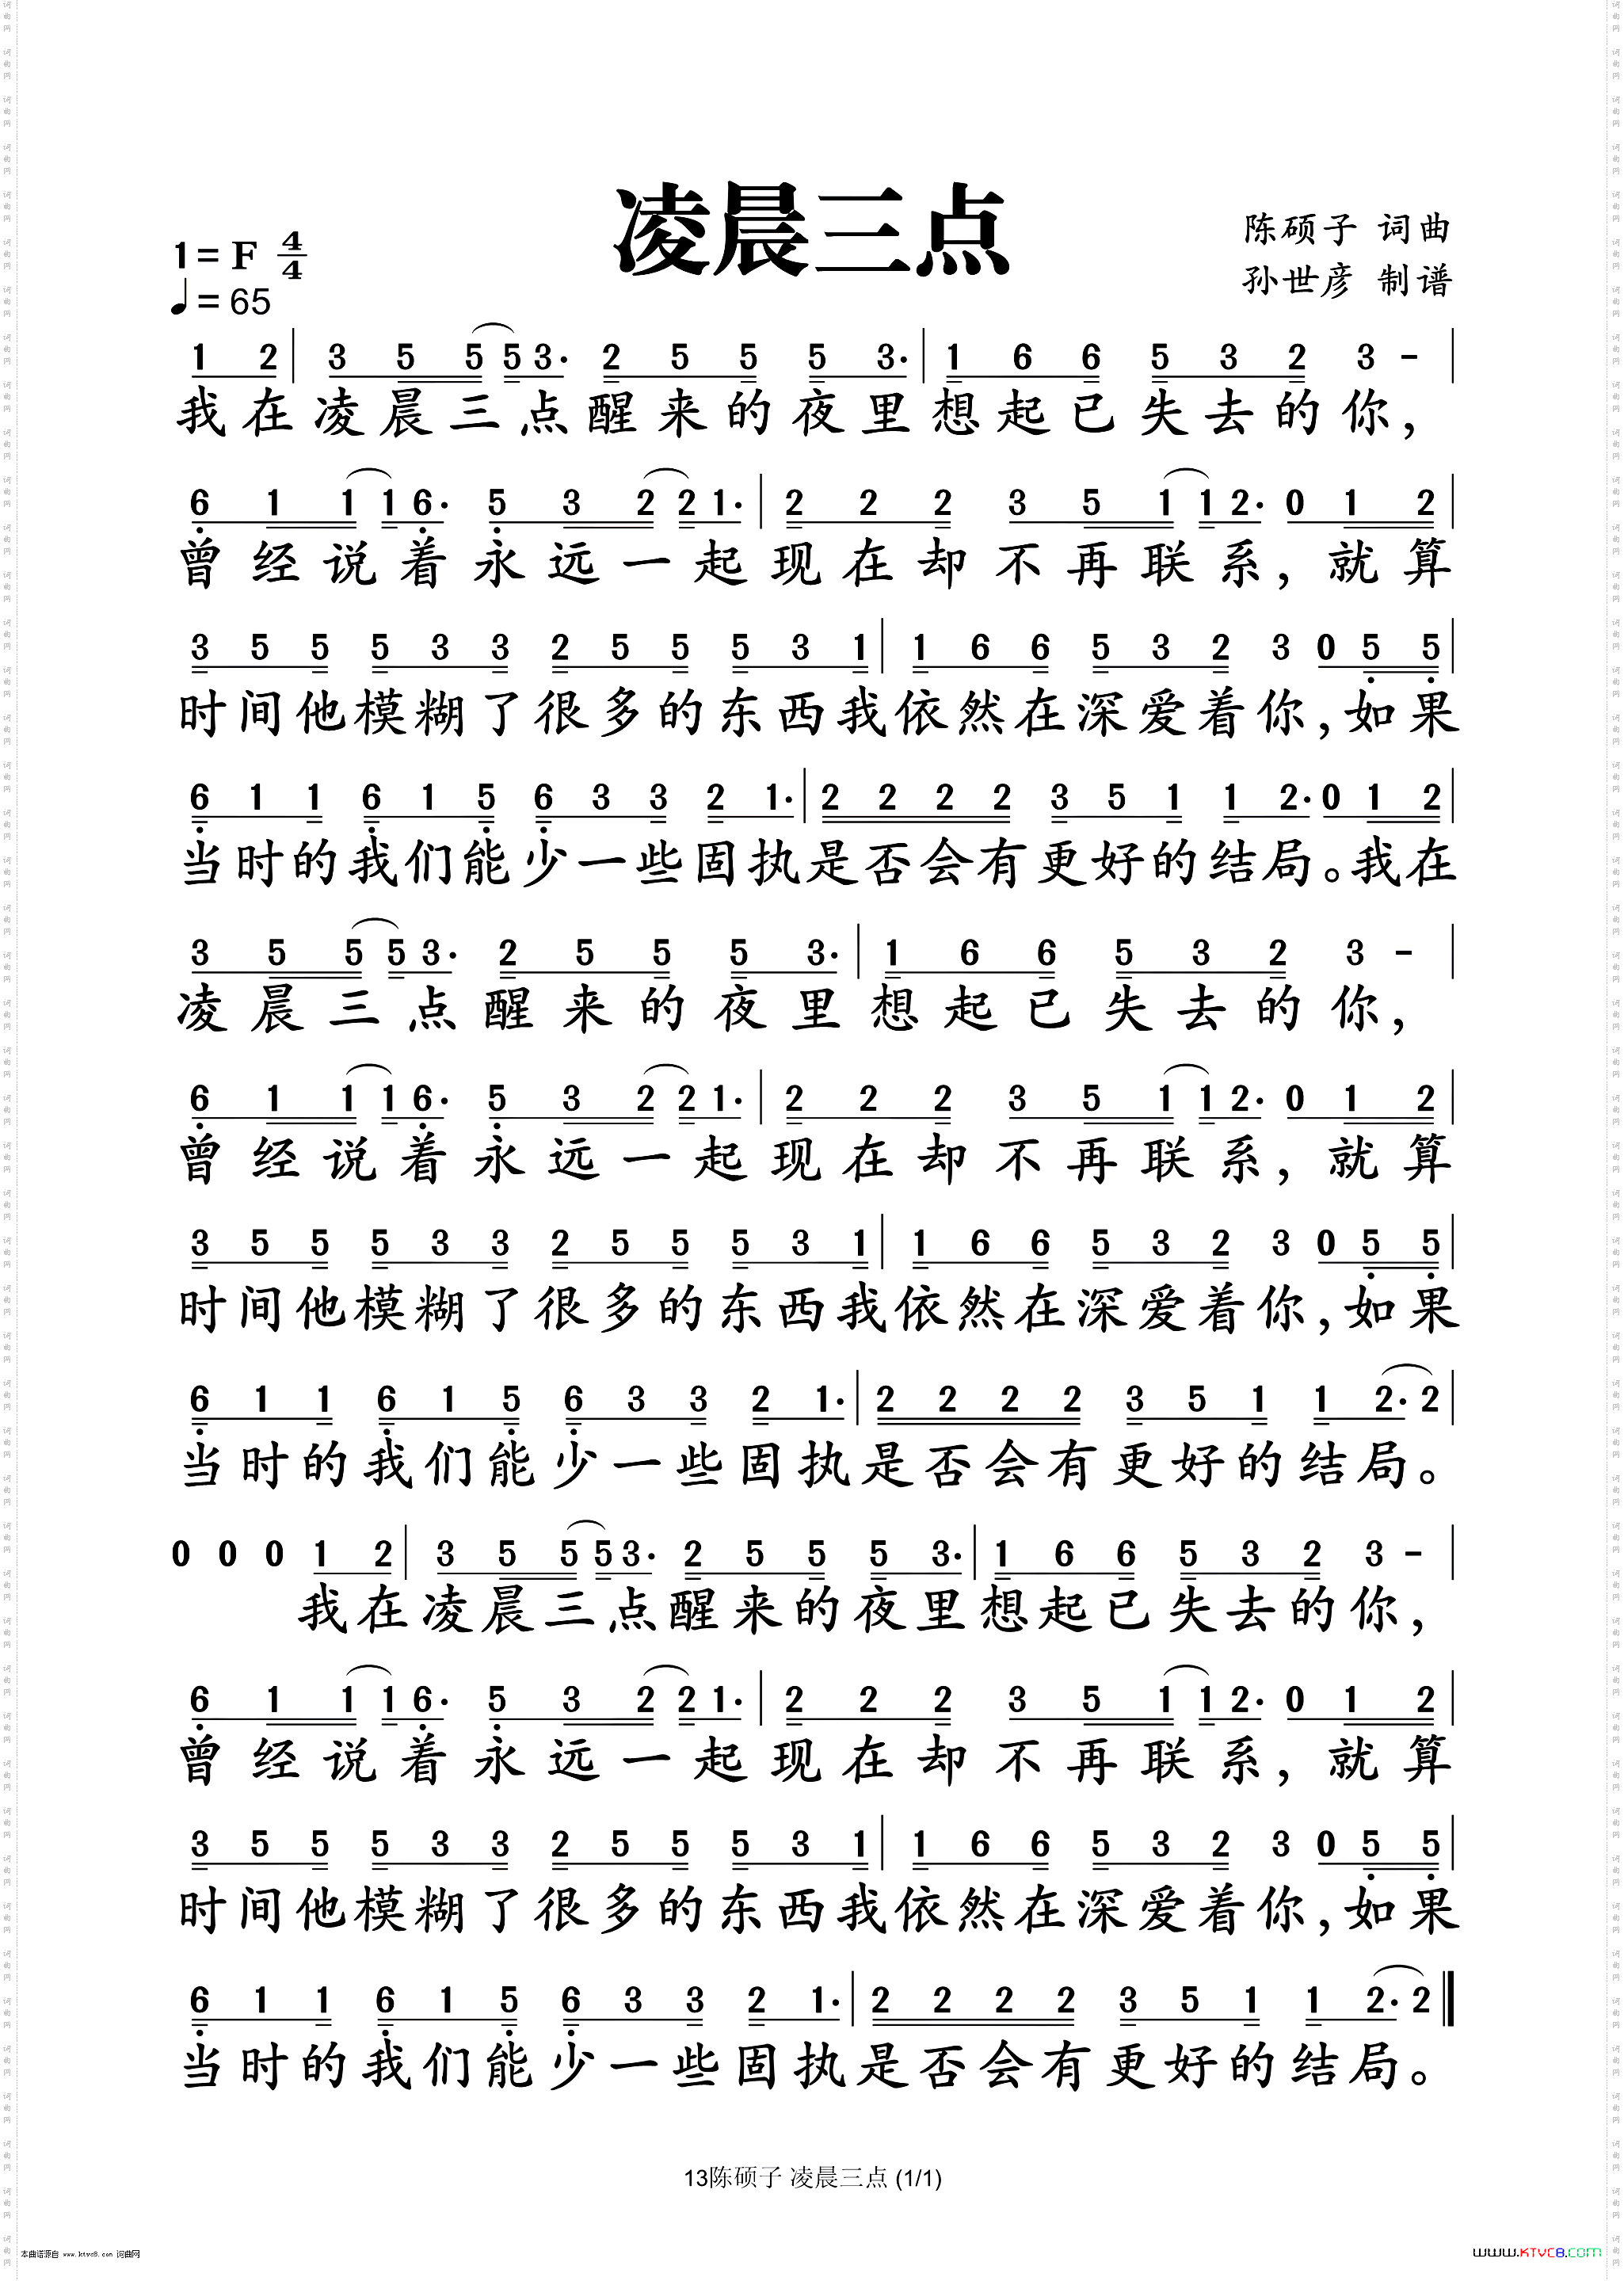 凌晨三点
1= F 4/4
♩= 65
陈硕子 词曲
孙世彦 制谱
1 2 | 3 5 5 5 3· 2 5 5 5 3· | 1 6 6 5 3 2 3 - |
我在凌晨三点醒来的夜里想起已失去的你，
6 1 1 1 6· 5 3 2 2 1· | 2 2 2 3 5 1 1 2· 0 1 2 |
曾经说着永远一起现在却不再联系，就算
3 5 5 5 3 3 2 5 5 5 3 1 | 1 6 6 5 3 2 3 0 5 5 |
时间他模糊了很多的东西我依然在深爱着你，如果
6 1 1 6 1 5 6 3 3 2 1· | 2 2 2 2 3 5 1 1 2· 0 1 2 |
当时的我们能少一些固执是否会有更好的结局。我在
3 5 5 5 3· 2 5 5 5 3· | 1 6 6 5 3 2 3 - |
凌晨三点醒来的夜里想起已失去的你，
6 1 1 1 6· 5 3 2 2 1· | 2 2 2 3 5 1 1 2· 0 1 2 |
曾经说着永远一起现在却不再联系，就算
3 5 5 5 3 3 2 5 5 5 3 1 | 1 6 6 5 3 2 3 0 5 5 |
时间他模糊了很多的东西我依然在深爱着你，如果
6 1 1 6 1 5 6 3 3 2 1· | 2 2 2 2 3 5 1 1 2· 2 |
当时的我们能少一些固执是否会有更好的结局。
0 0 0 1 2 | 3 5 5 5 3· 2 5 5 5 3· | 1 6 6 5 3 2 3 - |
我在凌晨三点醒来的夜里想起已失去的你，
6 1 1 1 6· 5 3 2 2 1· | 2 2 2 3 5 1 1 2· 0 1 2 |
曾经说着永远一起现在却不再联系，就算
3 5 5 5 3 3 2 5 5 5 3 1 | 1 6 6 5 3 2 3 0 5 5 |
时间他模糊了很多的东西我依然在深爱着你，如果
6 1 1 6 1 5 6 3 3 2 1· | 2 2 2 2 3 5 1 1 2· 2 ‖
当时的我们能少一些固执是否会有更好的结局。
13陈硕子 凌晨三点 (1/1)
本曲谱源自 www.ktvc8.com 词曲网
www.KTVC8.com